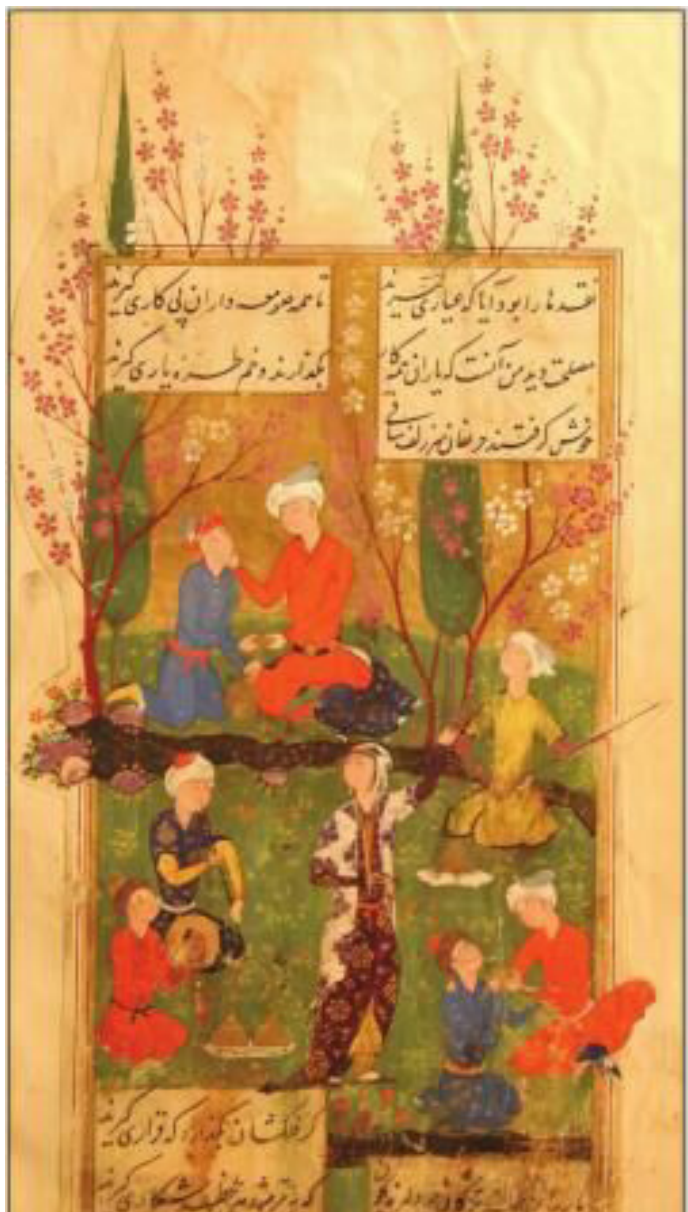 نقدها را بود آیا که عیاری گیرند
تا همه صومعه داران پی کاری گیرند
مصلحت دید من آنست که یاران همه کار
بگذارند و خم طره یاری گیرند
خوش گرفتند حریفان سر زلف ساقی
گر فلکشان بگذارد که قراری گیرند
که به مژه هر لحظه شکاری گیرند